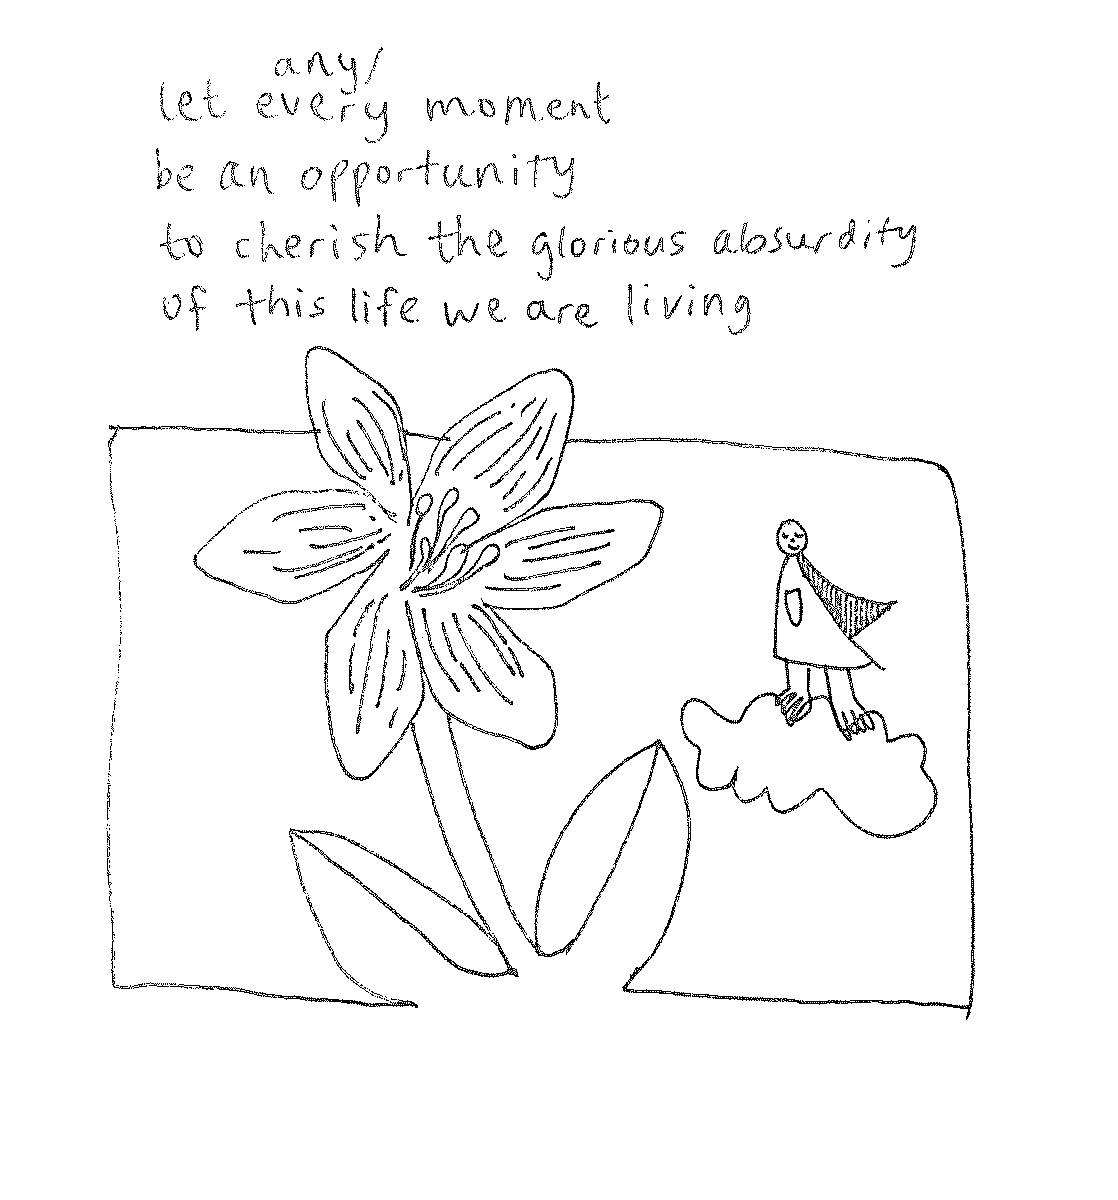 any/
let every moment
be an opportunity
to cherish the glorious absurdity
of this life we are living